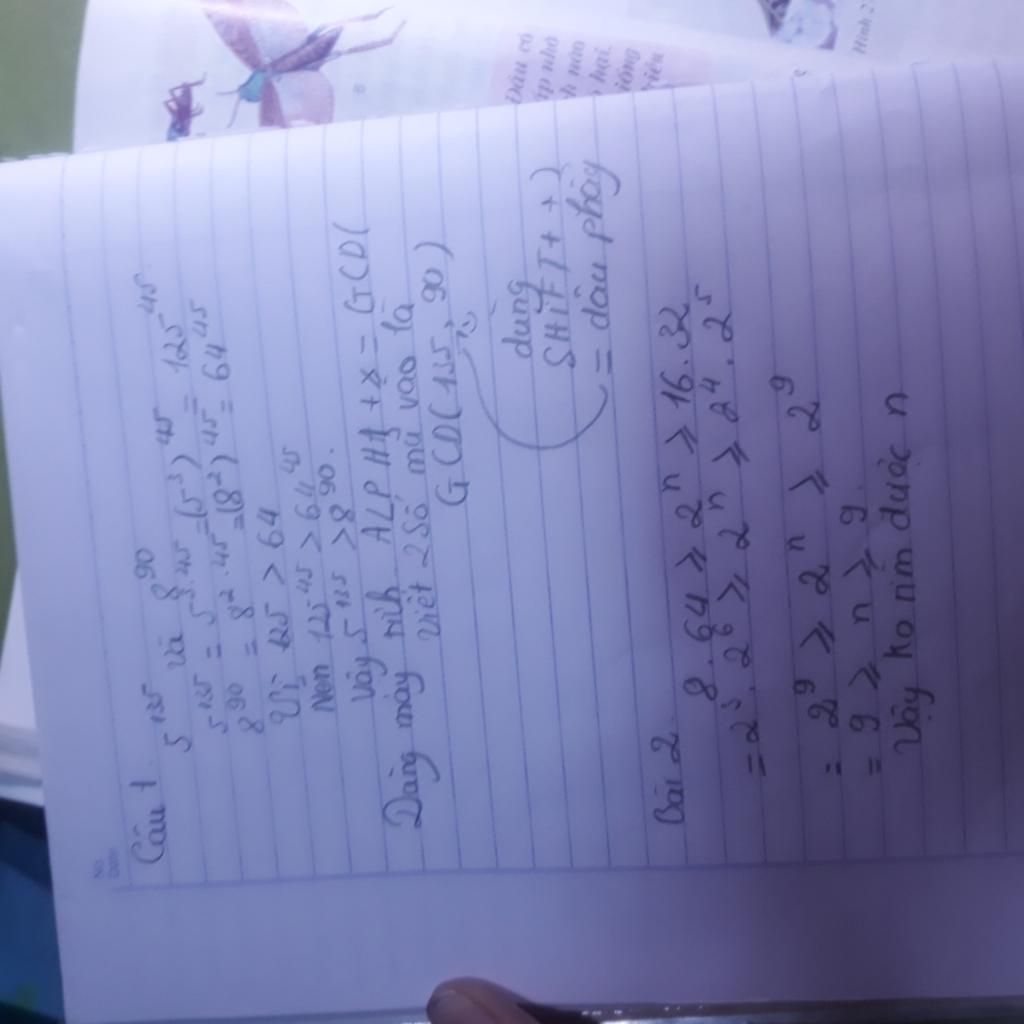 Câu 1.
5^135 và 8^90
5^135 = 5^3.45 = (5^3)^45 = 125^45
8^90 = 8^2.45 = (8^2)^45 = 64^45
Vì 125 > 64
Nen 125^45 > 64^45
Vây 5^135 > 8^90.
Dùng máy tính ALPHA + x = GCD(
Viết 2 số mũ vào là
GCD(135, 90)
dùng
SHiFT + )
= dấu phảy
Bài 2.
8.64 ≥ 2^n ≥ 16.32
= 2^3.2^6 ≥ 2^n ≥ 2^4.2^5
= 2^9 ≥ 2^n ≥ 2^9
= 9 ≥ n ≥ 9.
Vậy ko tìm được n
Dấu có
hại.
Hình 2.